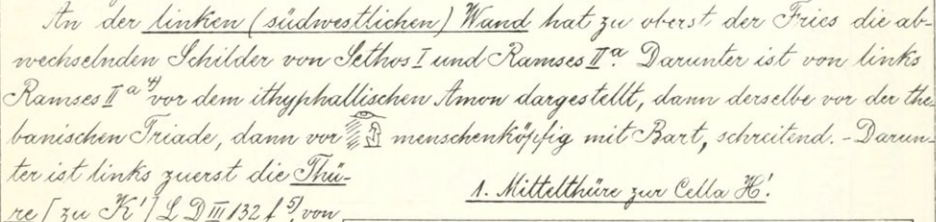 An der linken (südwestlichen) Wand hat zu oberst der Fries die ab-
wechselnden Schilder von Sethos I und Ramses II a. Darunter ist von links
Ramses II a 4) vor dem ithyphallischen Amon dargestellt, dann derselbe vor der the-
banischen Triade, dann vor menschenköpfig mit Bart, schreitend. - Darun-
ter ist links zuerst die Thü-
re [zu K'] L D III 132 f 5), von
1. Mittelthüre zur Cella H'.